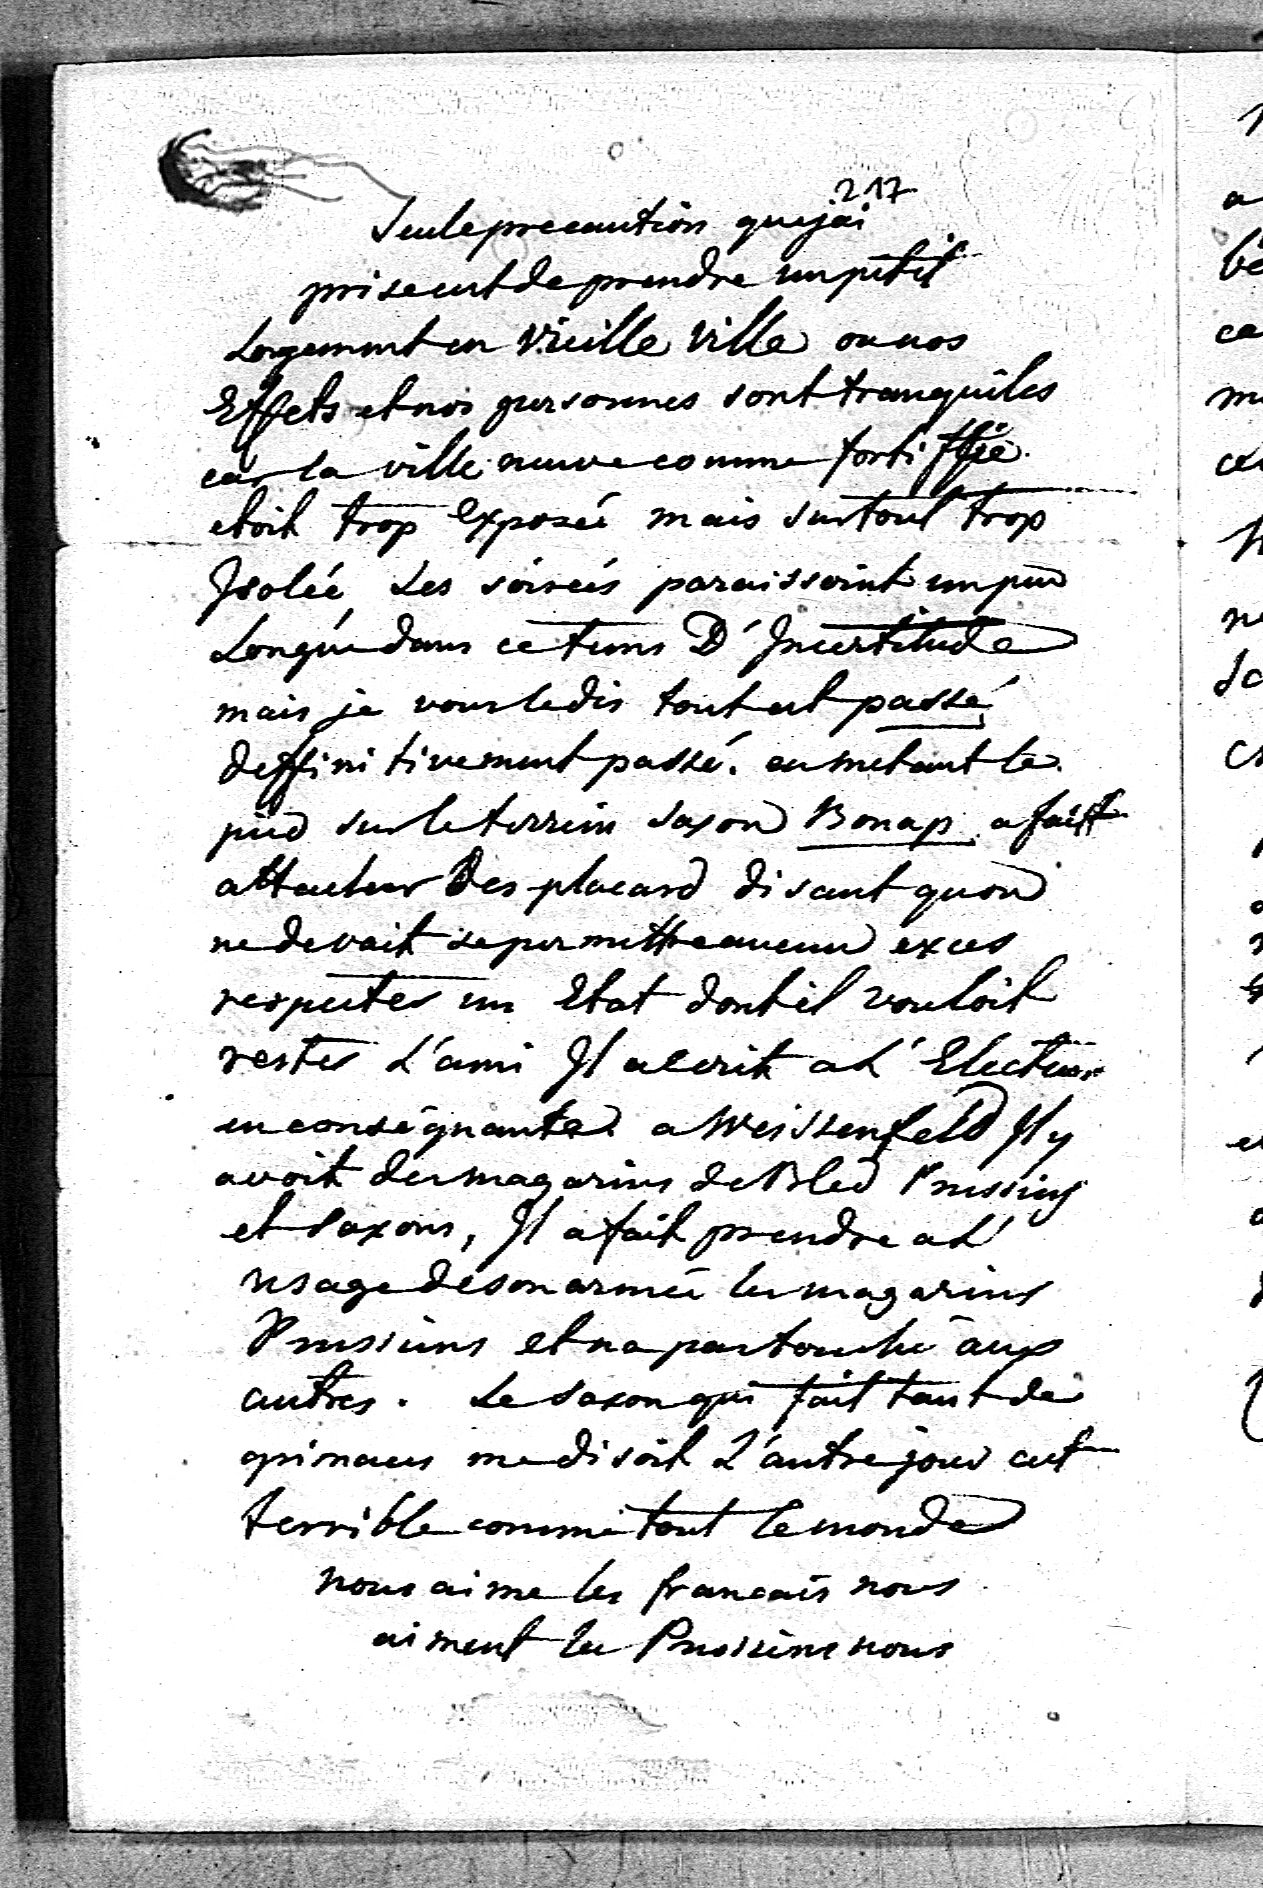 217
Seule precaution que jai
prise est de prendre un petit
Logement en vieille ville ou nos
Effets et nos personnes sont tranquiles
car la ville neuve comme fortiffiée
etoit trop exposée mais surtout trop
Isolée Les soirées paraissoint un peu
Longue dans ce tems D'Incertitude
mais je vous le dis tout est passé
deffinitivement passé. en metant le
pied sur le terrein saxon Bonap. a fait
attacher Des placard disant quon
ne devait se permettre aucun exces
respecter un Etat dont il vouloit
rester L'ami Il a ecrit a L'Electeur
en conséquante a Weissenfeld Il y
avoit des magasins de Bled Prussiens
et Saxons, Il a fait prendre a L'
usage de son armée les magasins
Prussiens et na pas touché aux
autres. Le saxon qui fait tant de
grimaces me disoit L'autre jour cest
terrible comme tout le monde
nous aime les francais nous
aiment les Prussiens nous